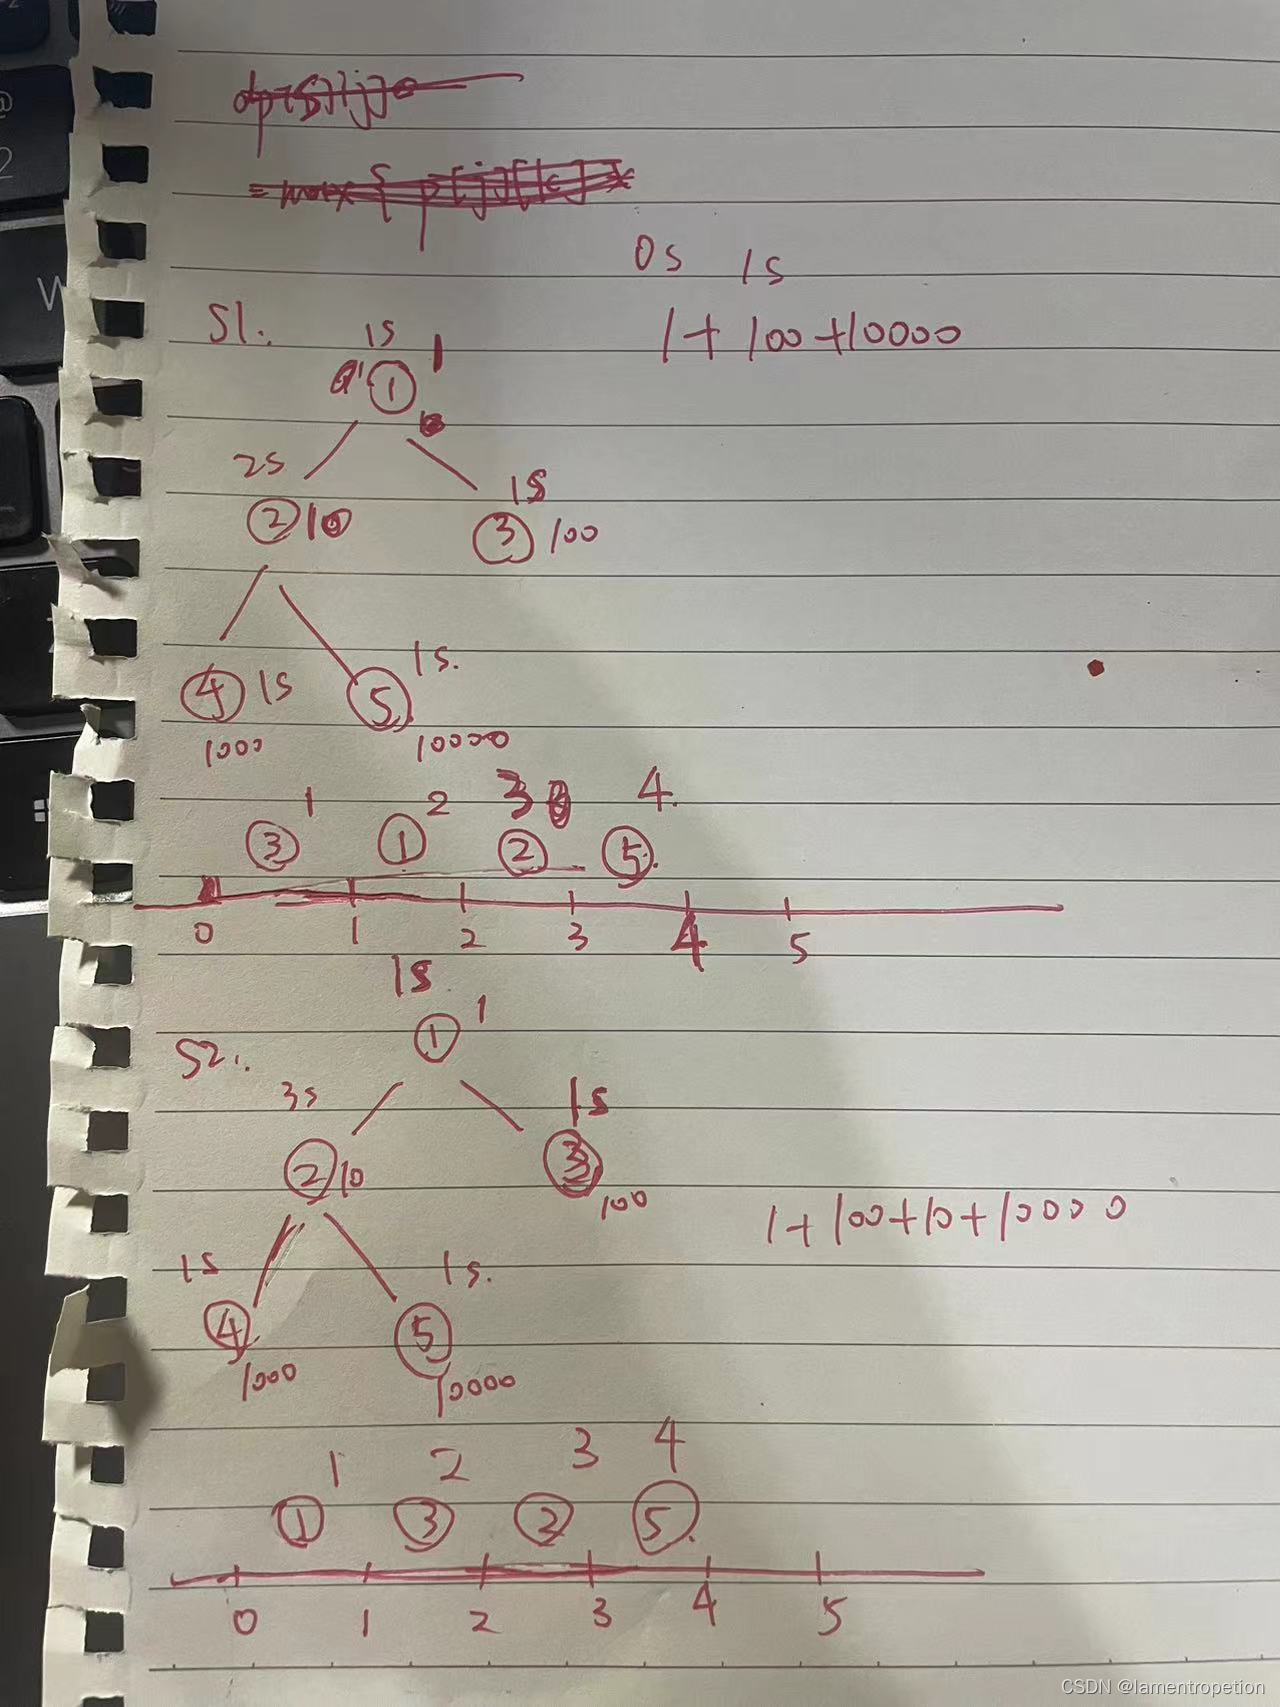 0s 1s
1+100+10000
S1.
1s
① 1
2s
1s
②10
③ 100
1s.
④ 1s
⑤
1000
10000
1 2 3 4.
③ ① ② ⑤.
0 1 2 3 4 5
1s
① 1
S2.
3s
1s
②10
③
100
1+100+10+10000
1s
1s.
④
⑤
1000
10000
1 2 3 4
① ③ ② ⑤.
0 1 2 3 4 5
CSDN @lamentropetion